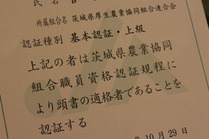 所属組合名 茨城県厚生農業協同組合連合会
認証種別 基本認証・上級
上記の者は茨城県農業協同
組合職員資格認証規程に
より頭書の適格者であることを
認証する
10月29日